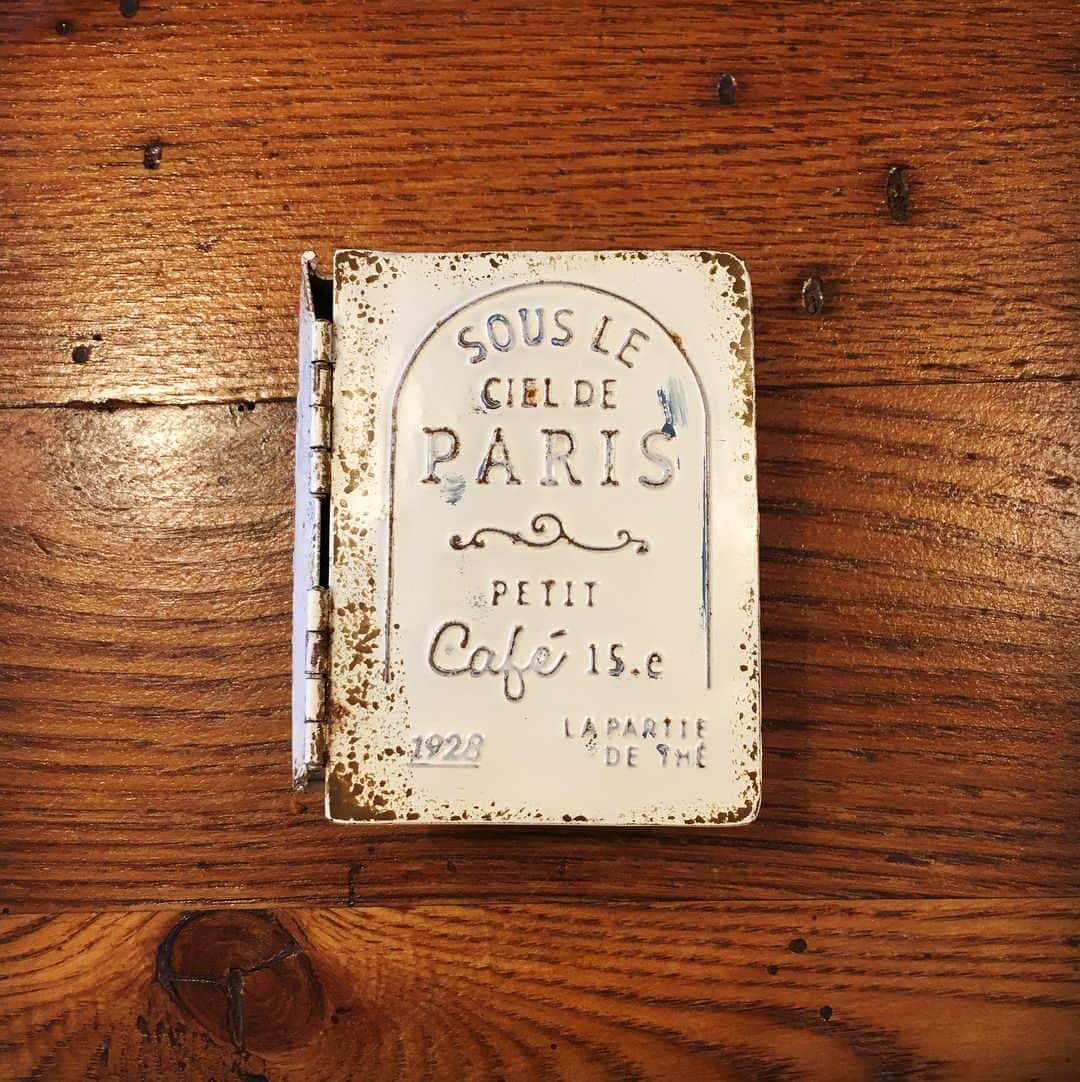 SOUS LE
CIEL DE
PARIS
PETIT
Café 15.e
1928
LA PARTIE
DE THÉ